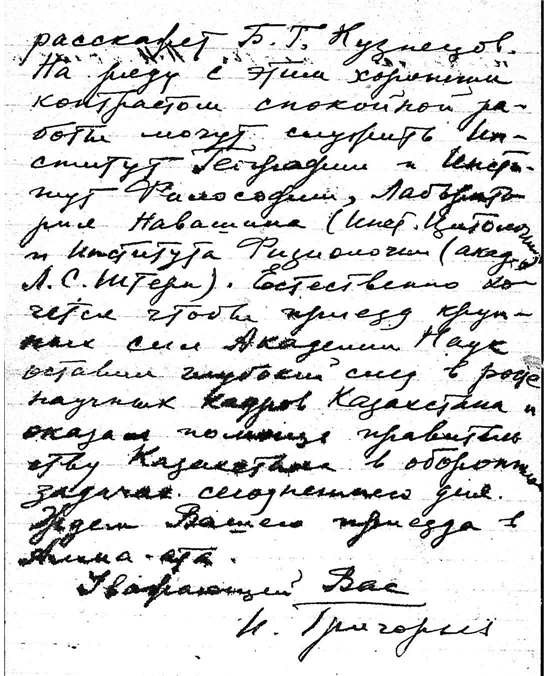 расскажет Б. Г. Кузнецов.
На ряду с этим хорошим
контрастом спокойной ра-
боты могут служить Ин-
ститут Географии и Инсти-
тут Философии, Лаборато-
рия Навашина (Инст. Цитологии)
и Института Физиологии (акад.
Л. С. Штерн). Естественно хо-
чется чтобы приезд круп-
ных сил Академии Наук
оставил глубокий след в роде
научных кадров Казахстана и
оказал помощь правитель
ству Казахстана в оборонных
задачах сегодняшнего дня.
Ждем Вашего приезда в
Алма-ата.
Уважающий Вас
Н. Григорьев